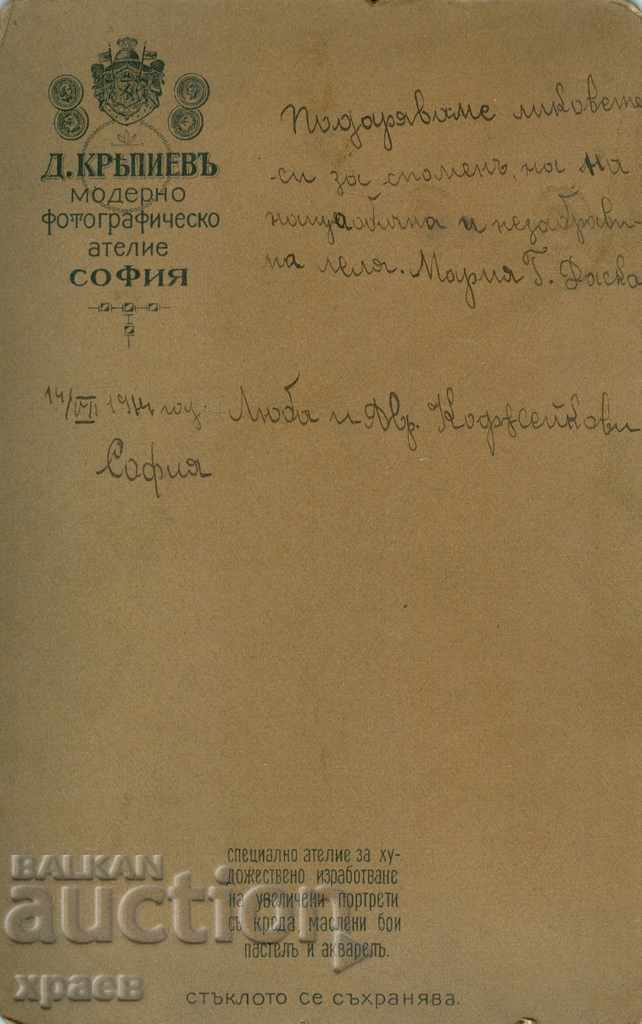 Д. КРѢПИЕВЪ
модерно
фотографическо
ателие
СОФИЯ
Подаряваме ликовете
си за споменъ, на
и незабрави-
ма леля. Мария Г. Даска
14/VII 191 год. Люба и Ст. Коджейкови
София
специално ателие за ху-
дожествено изработване
на увеличени портрети
съ креда, маслени бои
пастелъ и акварелъ.
стъклото се съхранява.
BALKAN
auction
храев